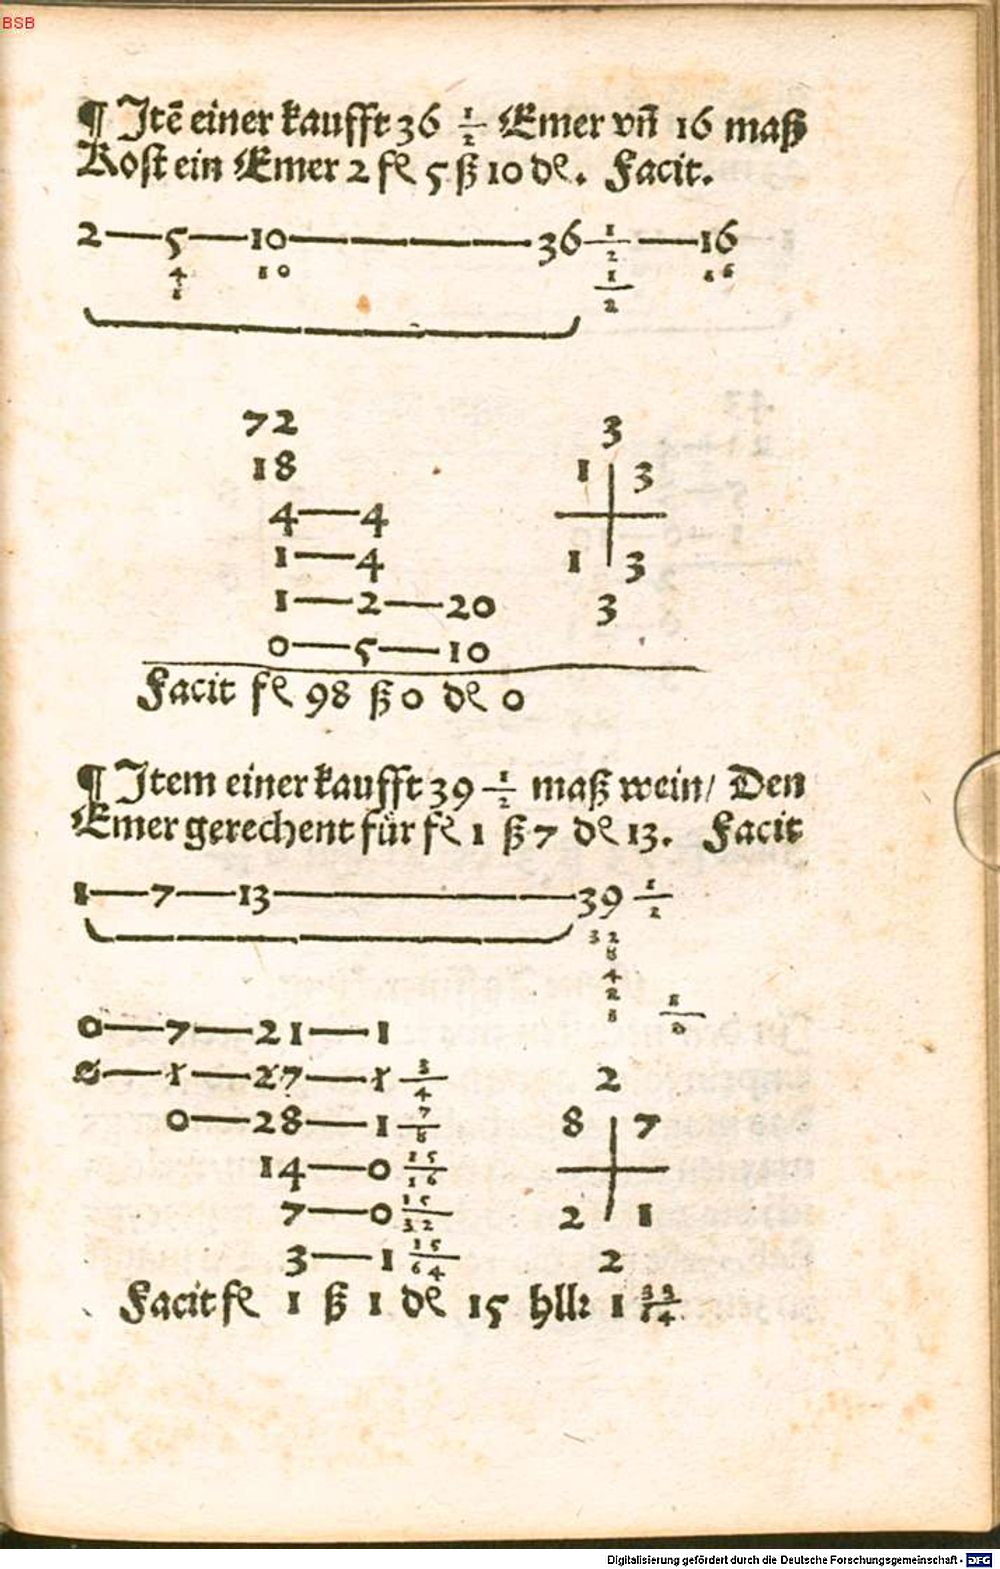 BSB
¶ Jtē einer kaufft 36 1/2 Emer vñ 16 maß
Kost ein Emer 2 fl 5 ß 10 dl. Facit.
2—5—10————36 1/2 —16
4 10 1/2 16
8
72
18
4—4
1—4
1—2—20
0—5—10
3
1 3
1 3
3
Facit fl 98 ß 0 dl 0
¶ Jtem einer kaufft 39 1/2 maß wein/ Den
Emer gerechent für fl 1 ß 7 dl 13. Facit
1—7—13————39 1/2
32
8
4
2
0—7—21—1
0—1—27—1 3/4
0—28—1 7/8
14—0 15/16
7—0 15/32
3—1 15/64
2
8 7
2 1
2
Facit fl 1 ß 1 dl 15 hllr 1
Digitalisierung gefördert durch die Deutsche Forschungsgemeinschaft - DFG